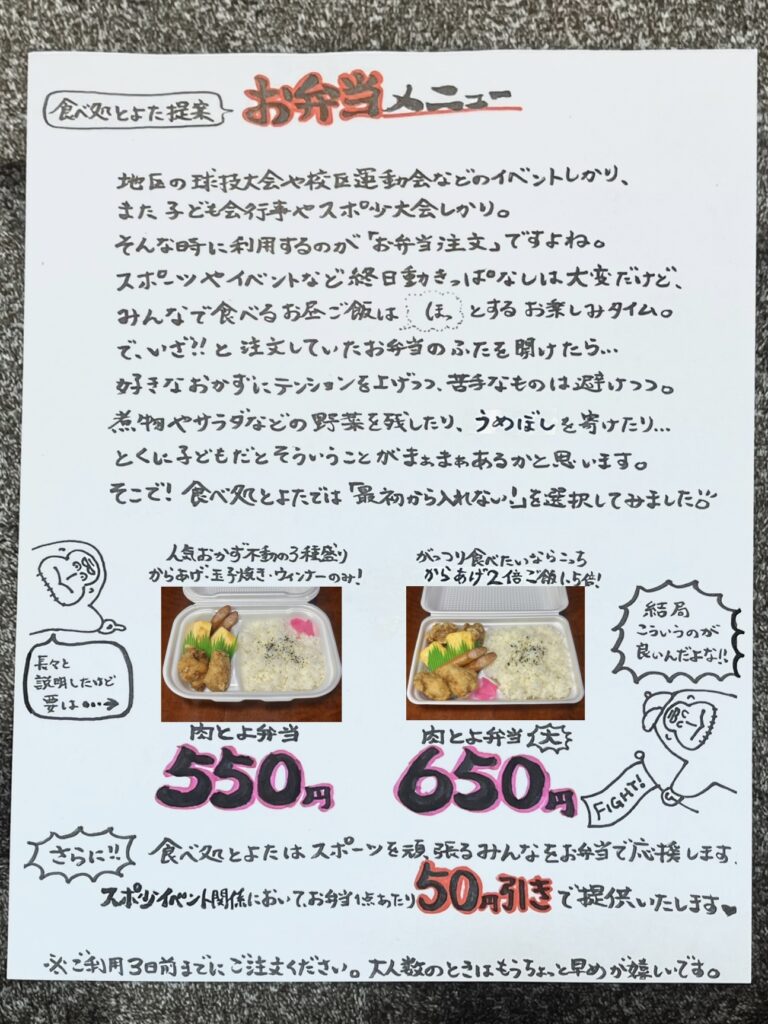 食べ処とよた提案
お弁当メニュー
地区の球技大会や校区運動会などのイベントしかり、
また子ども会行事やスポ少大会しかり。
そんな時に利用するのが「お弁当注文」ですよね。
スポーツやイベントなど終日動きっぱなしは大変だけど、
みんなで食べるお昼ご飯は ほっ とするお楽しみタイム。
で、いざ!!と注文していたお弁当のふたを開けたら…
好きなおかずにテンションを上げつつ、苦手なものは避けつつ。
煮物やサラダなどの野菜を残したり、うめぼしを寄けたり…
とくに子どもだとそういうことがまぁまぁあるかと思います。
そこで!食べ処とよたでは「最初から入れない!」を選択してみました
人気おかず不動の3種盛り
からあげ・玉子焼き・ウィンナーのみ!
がっつり食べたいならこっち
からあげ2倍ご飯1.5倍!
長々と
説明したけど
要は・・・→
結局
こういうのが
良いんだよな!!
肉とよ弁当
550円
肉とよ弁当 大
650円
FIGHT!
さらに!!
食べ処とよたはスポーツを頑張るみんなをお弁当で応援します.
スポーツイベント関係において、お弁当1点あたり50円引きで提供いたします♥
※ご利用3日前までにご注文ください。大人数のときはもうちょっと早めが嬉しいです。